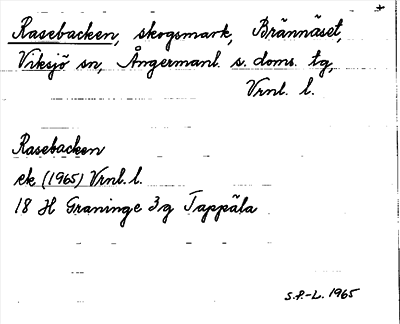 Rasebacken, skogsmark, Brännäset,
Viksjö sn, Ångermanl. s. doms. tg,
Vrnl. l.
Rasebacken
ek (1965) Vrnl. l.
18 H Graninge 3g Tappäla
S.P.-L. 1965